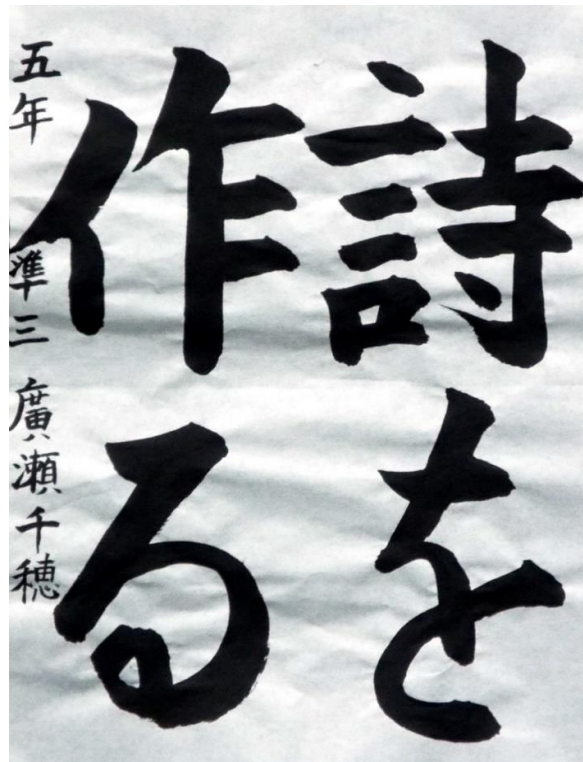 詩を
作る
五年 準三 廣瀬千穂